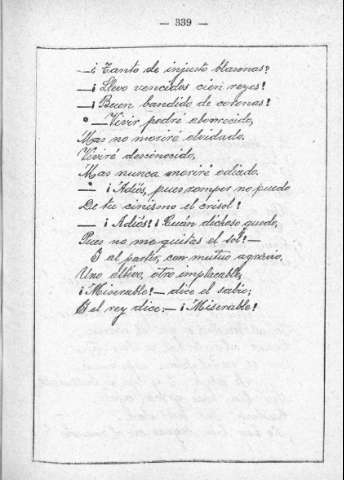 — 339 —
—¡Tanto de injusto blasonas?
—¡Llevo vencidos cien reyes!
—¡Buen bandido de coronas!
—Vivir podré aborrecido,
Mas no moriré olvidado.
Viviré desconocido,
Mas nunca moriré odiado.
—¡Adiós, pues romper no puedo
De tu cinismo el crisol!
—¡Adiós! ¡Cuán dichoso quedo,
Pues no me quitas el sol!—
Y al partir, con mutuo agravio,
Uno altivo, otro implacable,
¡Miserable!—dice el sabio;
Y el rey dice:—¡Miserable!